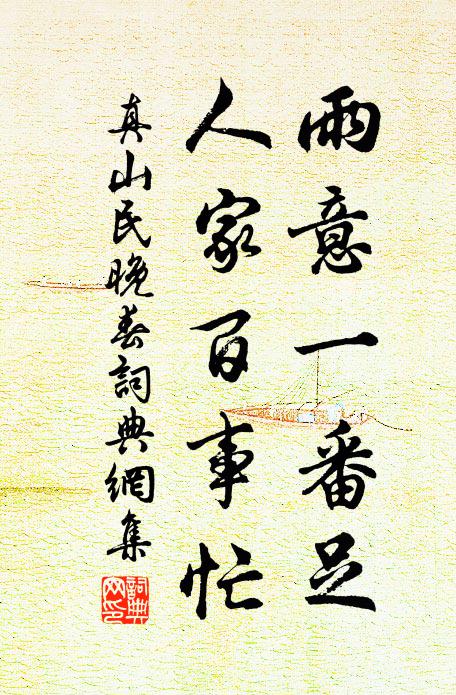 雨意一番足
人家百事忙
真山民晚春詞典網集
詞典
网印